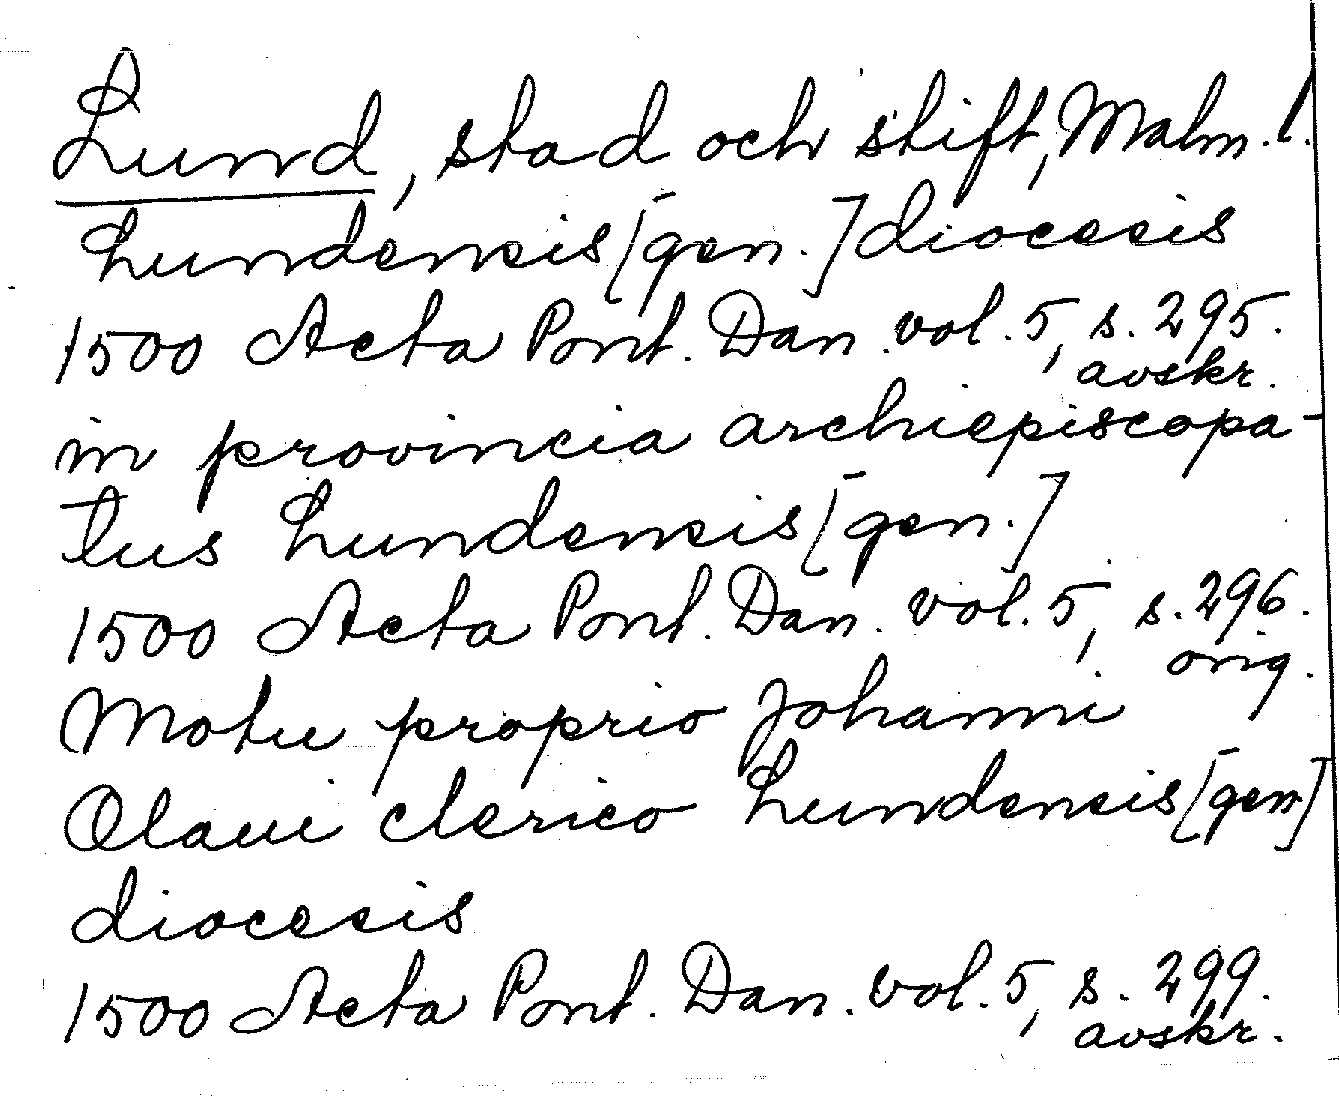 Lund, stad och stift, Malm. l.
Lundensis [gen.] diocesis
1500 Acta Pont. Dan. vol. 5, s. 295.
avskr.
in provincia archiepiscopa-
tus Lundensis [gen.]
1500 Acta Pont. Dan. vol. 5, s. 296.
orig.
Motu proprio Johanni
Olaui clerico Lundensis [gen]
diocesis
1500 Acta Pont. Dan. vol. 5, s. 299.
avskr.